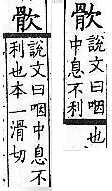 說文曰咽
中息不利
也
說文曰咽中息不
利也本一滑切